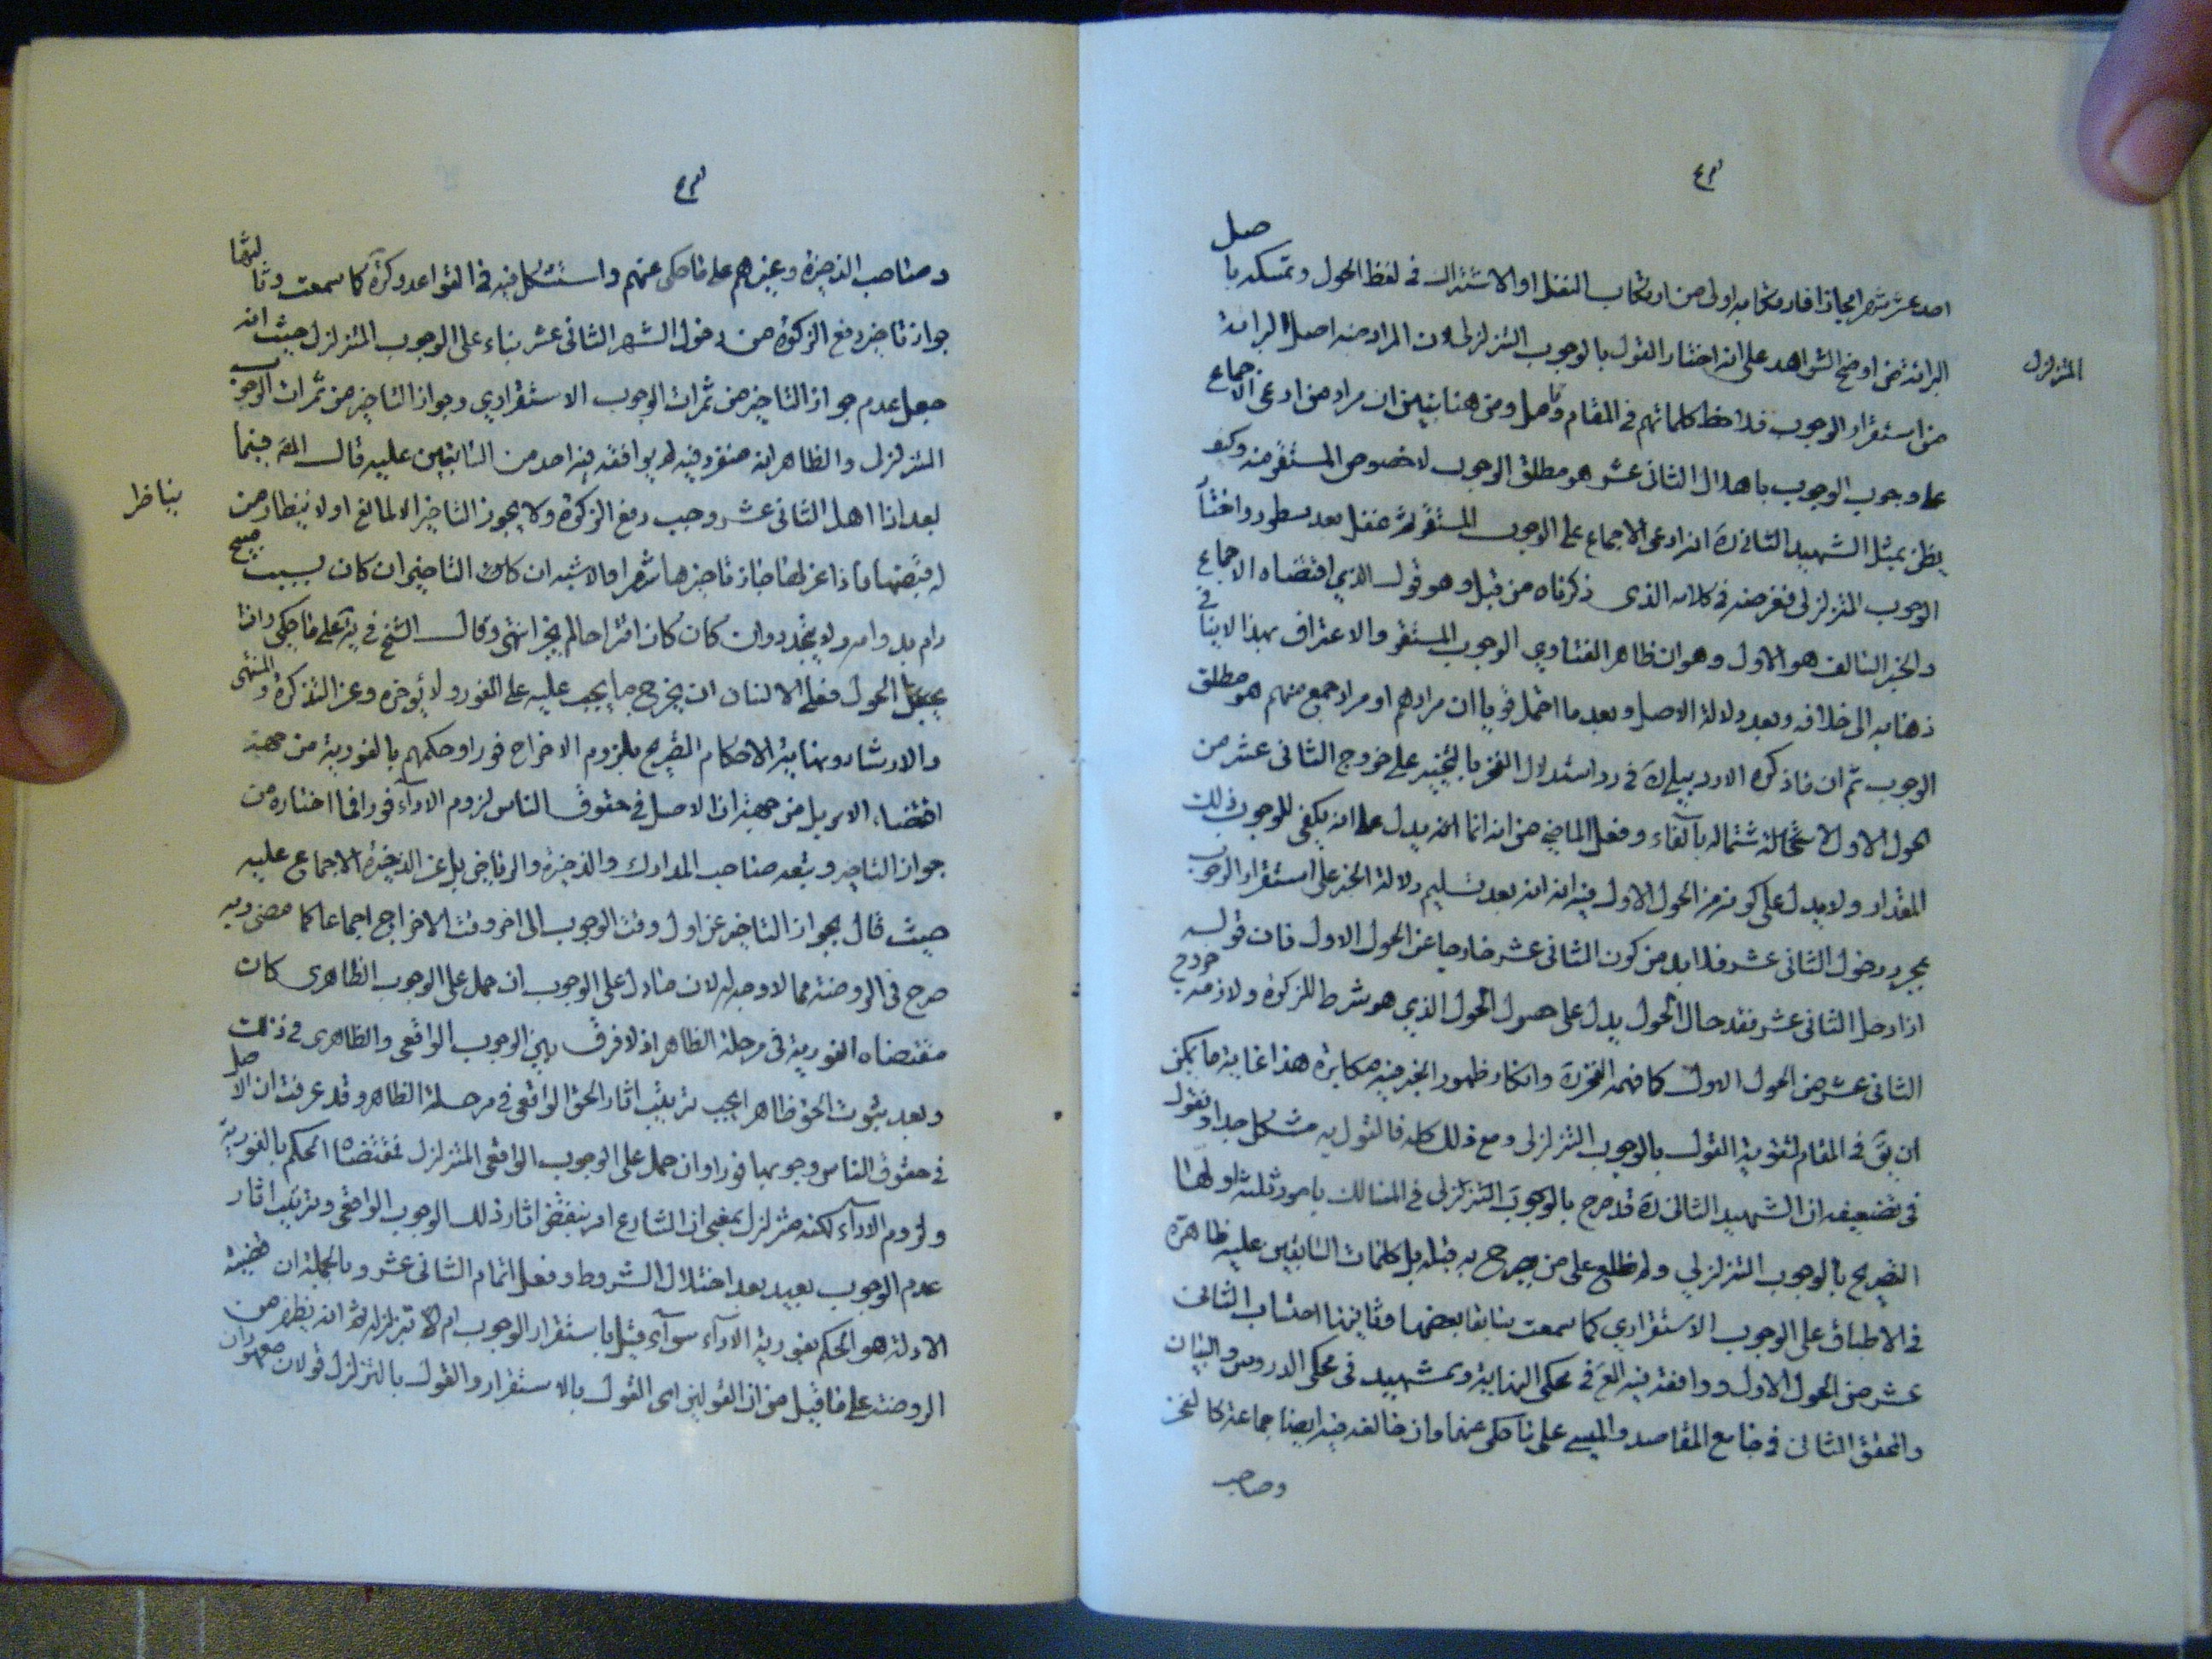 احد عشر شهرا مجازا فارتكابه اولى من ارتكاب النقل او الاشتراك في لفظ الحول وتمسكه باصل
البرائة من اوضح الشواهد على انه اختار القول بالوجوب التزلزلى لان المراد منه اصل البرائة
المتزلزل
من استقرار الوجوب فلاحظ كلماتهم في المقام وتامل ومن هنا يتبين ان مراد من ادعى الاجماع
على وجوب الوجوب باهلال الثانى عشر هو مطلق الوجوب لا خصوص المستقر منه وكيف
يظن بمثل الشهيد الثانى ره انه ادعى الاجماع على الوجوب المستقر ثم غفل بعد سطور واختار
الوجوب المتزلزل في كلامه الذى ذكرناه من قبل وهو قوله الذي اقتضاه الاجماع
والخبر السالف هو الاول وهو ان ظاهر الفتاوي الوجوب المستقر والاعتراف بهذا لا ينافي
ذهابه الى خلافه وبعد دلالة الاصل وبعد ما احتمل قويا ان مرادهم او مراد جمع منهم هو مطلق
الوجوب ثم ان ما ذكره الاردبيلى ره في رد استدلال الفخر بالخبر على خروج الثانى عشر من
الحول الاول لاشتماله بالفاء وفعل الماضي من انه انما يدل على انه يكفى للوجوب ذلك
المقدار ولا يدل على كونه من الحول الاول فيه انه بعد تسليم دلالة الخبر على استقرار الوجوب
بمجرد دخول الثانى عشر فلا بد من كون الثانى عشر خارجا عن الحول الاول فان قوله
اذا دخل الثانى عشر فقد حال الحول يدل على حصول الحول الذي هو شرط للزكوة ولازمه خروج
الثانى عشر من الحول الاول كما فهمه الفخر ره وانكار ظهور الخبر فيه مكابرة هذا غاية ما يمكن
ان يق في المقام لتقوية القول بالوجوب التزلزلى ومع ذلك كله فالقول به مشكل جدا ونقول
في تضعيفه ان الشهيد الثانى ره قد صرح بالوجوب التزلزلى في المسالك بامور ثلثة اولها
التصريح بالوجوب التزلزلي ولم نطلع على من صرح به قبله بل كلمات السابقين عليه ظاهرة
في الاطباق على الوجوب الاستقراري كما سمعت سابقا بعضها وثانيها احتساب الثانى
عشر من الحول الاول ووافقه فيه العلامة في محكى النهاية والشهيد في محكى الدروس والبيان
والمحقق الثانى في جامع المقاصد والميسي على ما حكى عنهما وان خالفه فيه ايضا جماعة كالفخر
وصاحب
وصاحب الذخيرة وغيرهم على ما حكى عنهم واستشكل فيه في القواعد وكرة كما سمعت وثالثها
جواز تاخير دفع الزكوة من دخول الشهر الثانى عشر بناء على الوجوب المتزلزل حيث انه
جعل عدم جواز التاخير من ثمرات الوجوب الاستقراري وجواز التاخير من ثمرات الوجوب
المتزلزل والظاهر انه متفرد فيه لم يوافقه فيه احد من السابقين عليه قال المحقق فيما
يناظر
بعد اذا اهل الثانى عشر وجب دفع الزكوة ولا يجوز التاخير الا لمانع او لانتظار من
له قبضها فاذا عزلها جاز تاخيرها شهرا والاشبه ان كان التاخير ان كان بسبب مبيح
دام بدوامه ولا يتحدد وان كان كان اقتراحا لم يجز انتهى وقال الشيخ في ية على ما حكى واذا
حال الحول فعلى الانسان ان يخرج ما يجب عليه على الفور ولا يؤخره وعن التذكرة والمنتهى
والارشاد ونهاية الاحكام التصريح بلزوم الاخراج فورا وحكمهم بالفورية من جهة
اقتضاء الامر بل من جهة ان الاصل في حقوق الناس لزوم الاداء فورا فما اختاره من
جواز التاخير وتبعه صاحب المدارك والذخيرة والرياض بل عن الذخيرة الاجماع عليه
حيث قال بجواز التاخير عن اول وقت الوجوب الى اخر وقت الاخراج اجماعا كما حضرويه
صرح في الروضة مما لا وجه له لان ما دل على الوجوب ان حمل على الوجوب الظاهرى كان
مقتضاه الفورية في مرحلة الظاهر اذ لا فرق بين الوجوب الواقعى والظاهرى في ذلك
وبعد ثبوت الحق ظاهرا يجب ترتيب اثار الحق الواقعى في مرحلة الظاهر وقد عرفت ان الاصل
في حقوق الناس وجوبها فورا وان حمل على الوجوب الواقعى المتزلزل فمقتضاه الحكم بالفورية
ولزوم الاداء لكنه متزلزل بمعنى ان الشارع امر بنقض اثار ذلك الوجوب الواقعى وترتيب اثار
عدم الوجوب بعيد بعد اختلال الشروط وفعل اتمام الثانى عشر وبالجملة ان قضية
الادلة هو الحكم بفورية الاداء سواء قيل باستقرار الوجوب ام لا تزلزله ثم انه يظهر من
الروضة على ما قيل من ان القولين اى القول بالاستقرار والقول بالتزلزل قولان مشهوران